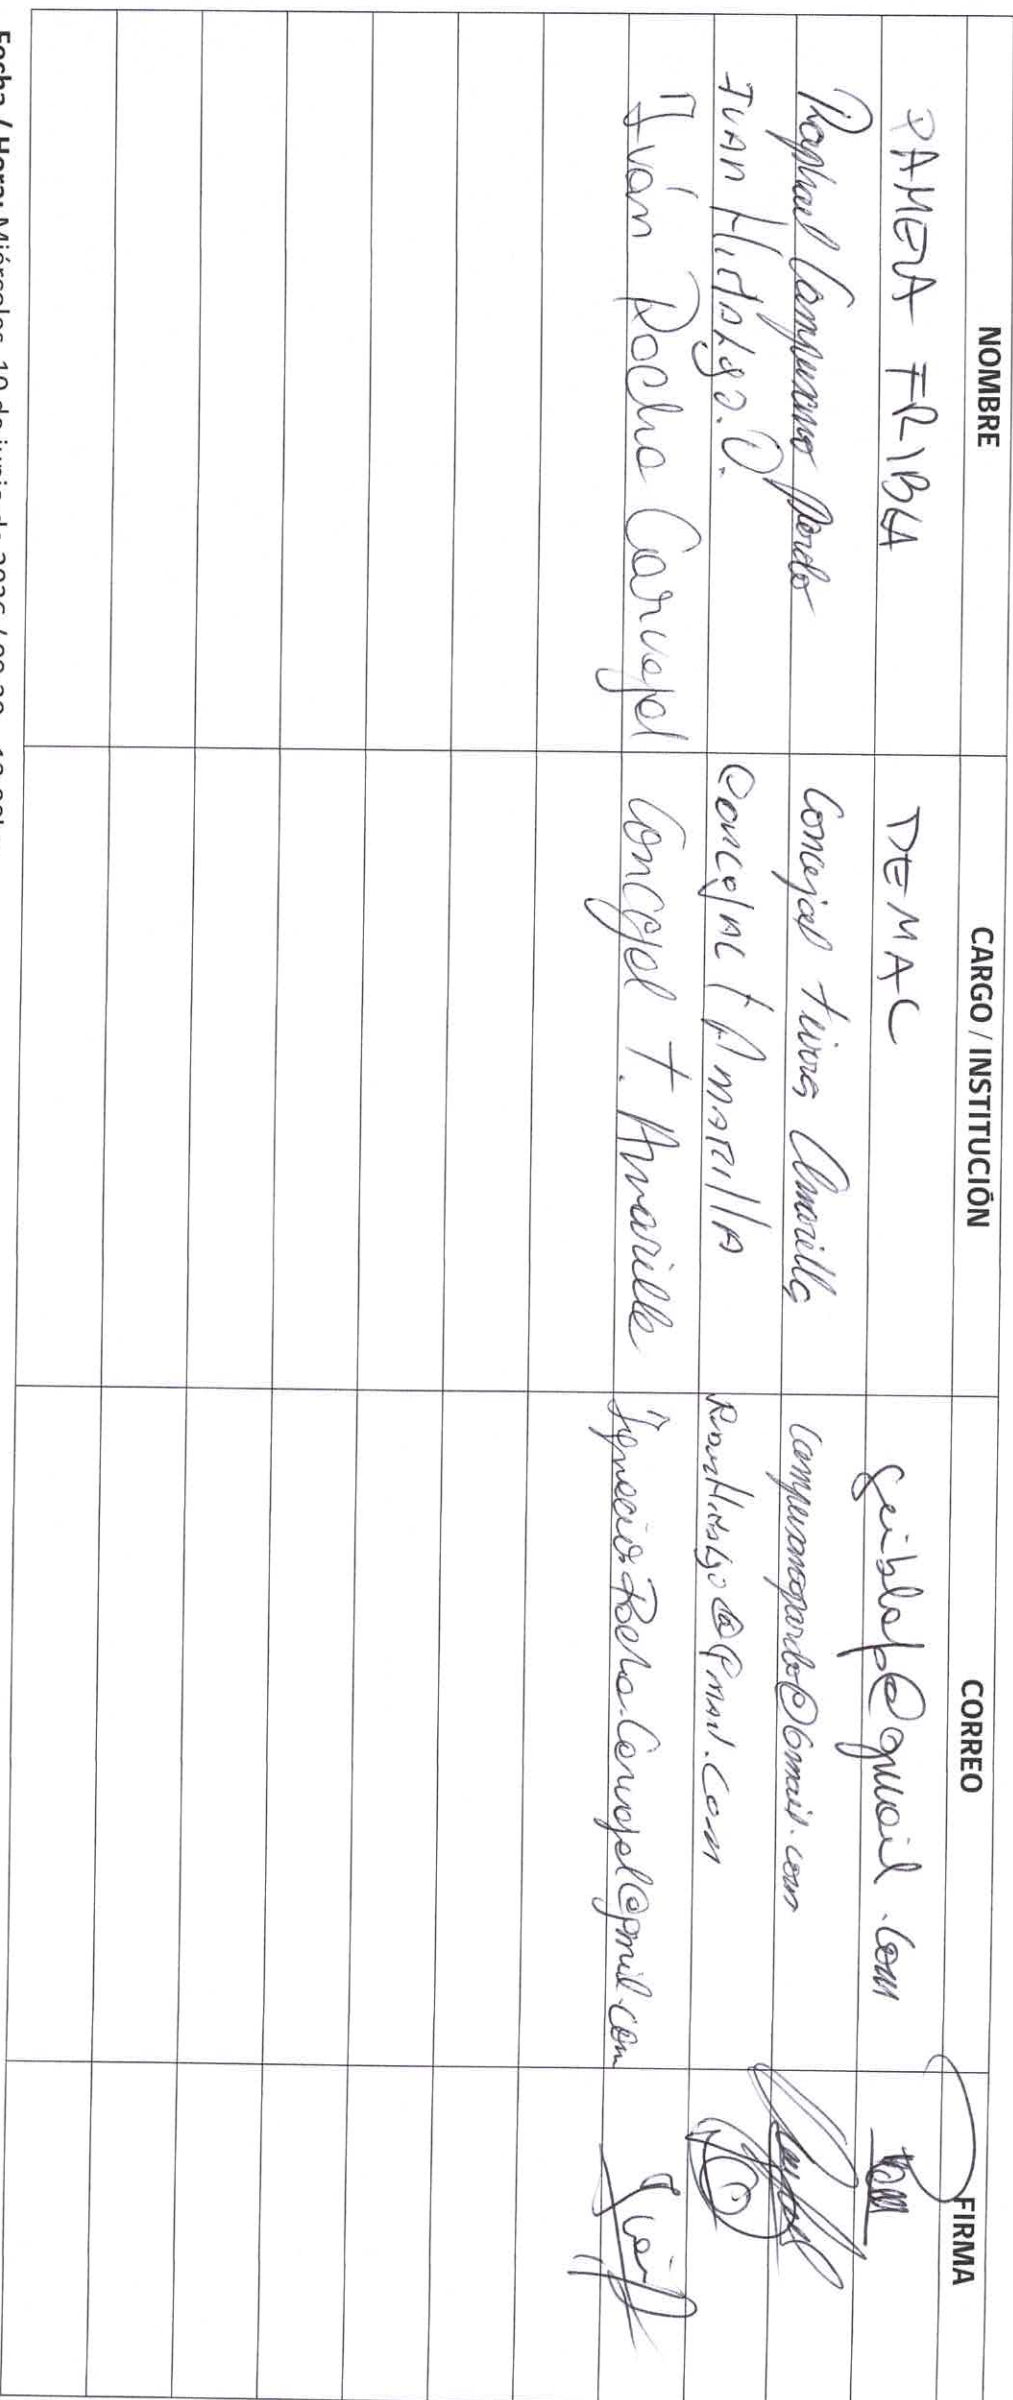 NOMBRE CARGO / INSTITUCIÓN CORREO FIRMA
PAMELA FRIBLA DEMAC @gmail.com
Raphael Campusano Pardo Concejal tierra Amarilla campusanopardo@Gmail.com
IVAN HidALgo.O. Concejal t AmARillA @gmail.com
Iván Rocha Carvajal Concejal T. Amarilla Ignacio.Rocha.Carvajal@gmail.com
Fecha / Hora: Miércoles, 10 de junio de 2026 /